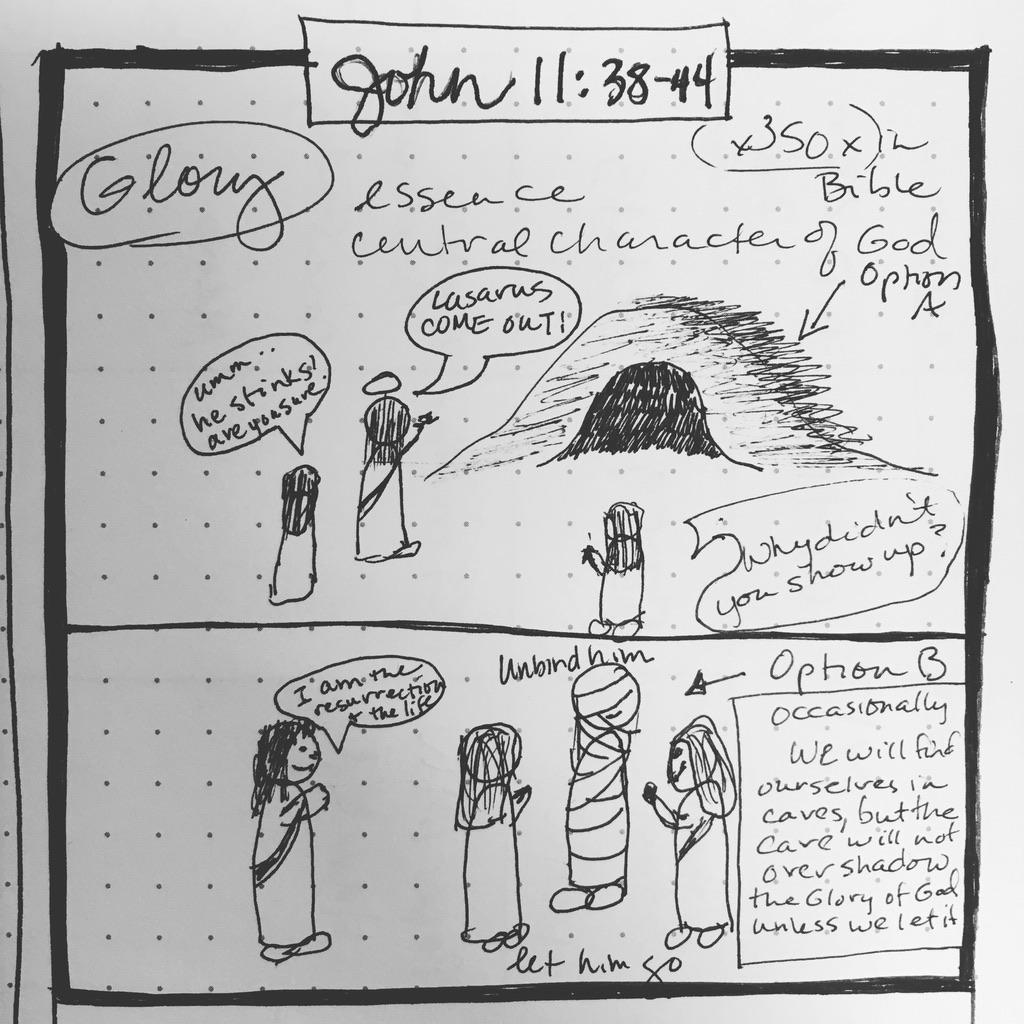 John 11:38-44
Glory
(x350x) in
Bible
essence
central character of God
Option
A
Lasarus
COME OUT!
umm..
he stinks!
are you sure
Why didn't
you show up?
Unbind him
I am the
resurrection
& the life
Option B
occasionally
We will find
ourselves in
caves, but the
cave will not
over shadow
the Glory of God
unless we let it
let him go